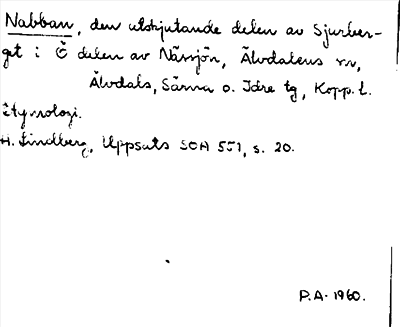 Nabban, den utskjutande delen av Sjurber-
get i Ö delen av Nässjön, Älvdalens sn,
Älvdals, Särna o. Idre tg, Kopp. l.
Etymologi.
H. Lindberg, Uppsats SOA 551, s. 20.
P.A. 1960.